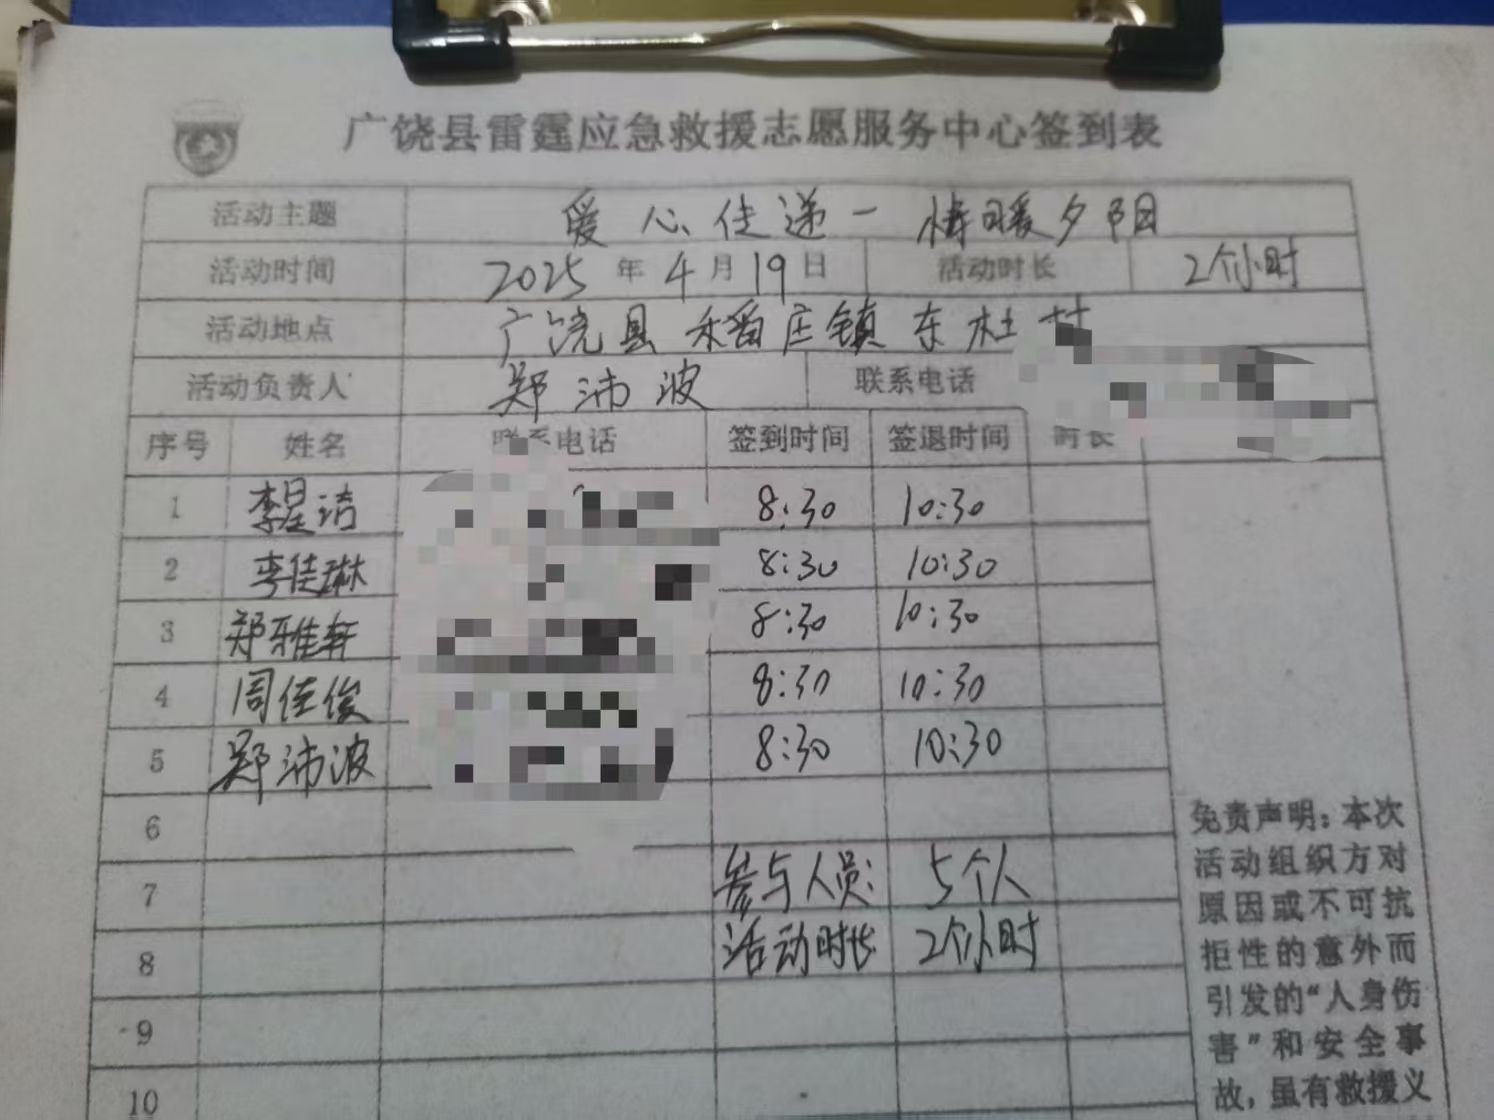 广饶县雷霆应急救援志愿服务中心签到表
活动主题 爱心传递一情暖夕阳
活动时间 2025年4月19日 活动时长 2个小时
活动地点 广饶县稻庄镇东杜村
活动负责人 郑沛波 联系电话
序号 姓名 联系电话 签到时间 签退时间 时长
1 李星洁 8:30 10:30
2 李佳琳 8:30 10:30
3 郑雅轩 8:30 10:30
4 周佳俊 8:30 10:30
5 郑沛波 8:30 10:30
6
7 参与人员: 5个人
8 活动时长 2个小时
9
10
免责声明：本次
活动组织方对
原因或不可抗
拒性的意外而
引发的“人身伤
害”和安全事
故，虽有救援义